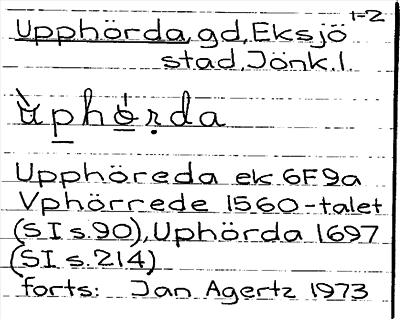 1-2
Upphörda, gd, Eksjö
stad, Jönk. l.
ùphö́rda
Upphöreda ek 6F9a
Vphörrede 1560-talet
(SI s. 90), Uphörda 1697
(SI s. 214)
forts: Jan Agertz 1973